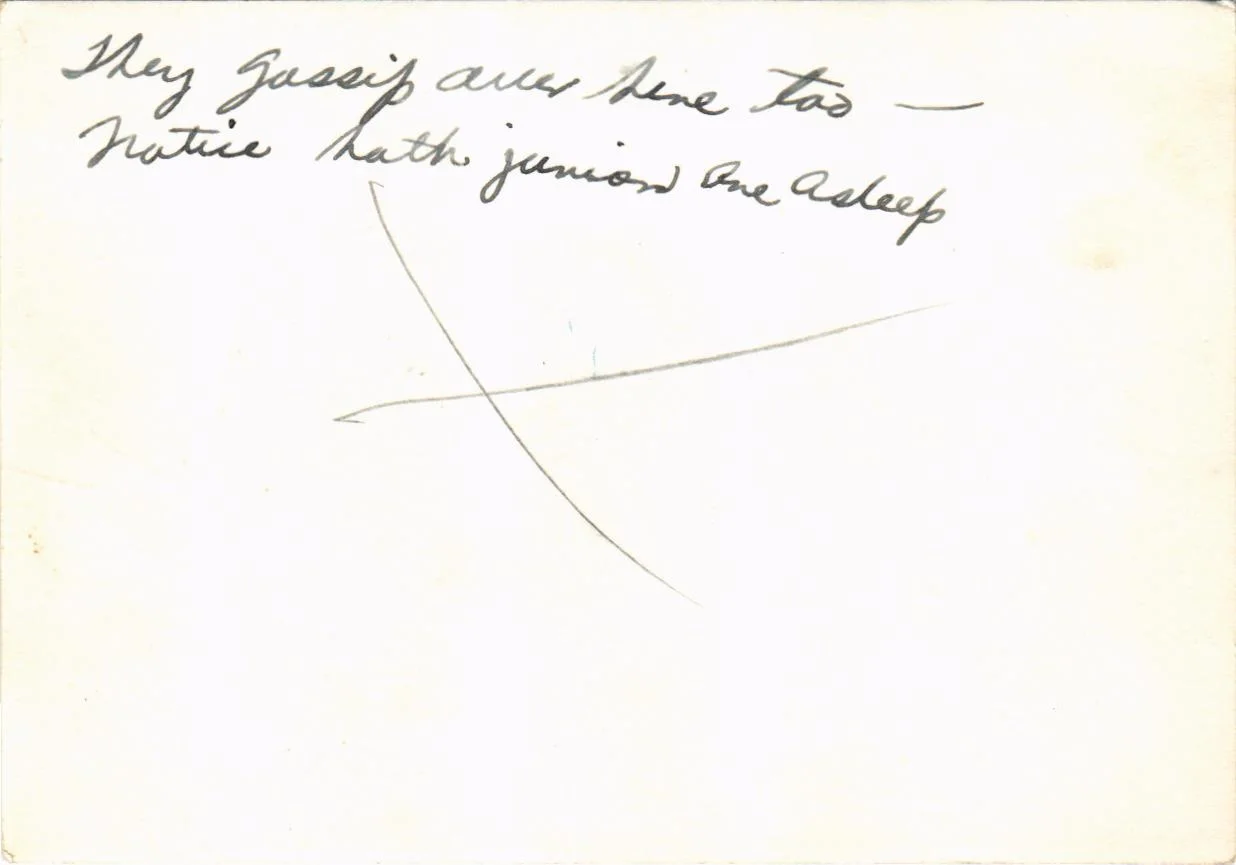 They gossip over here too —
Notice both juniors are asleep